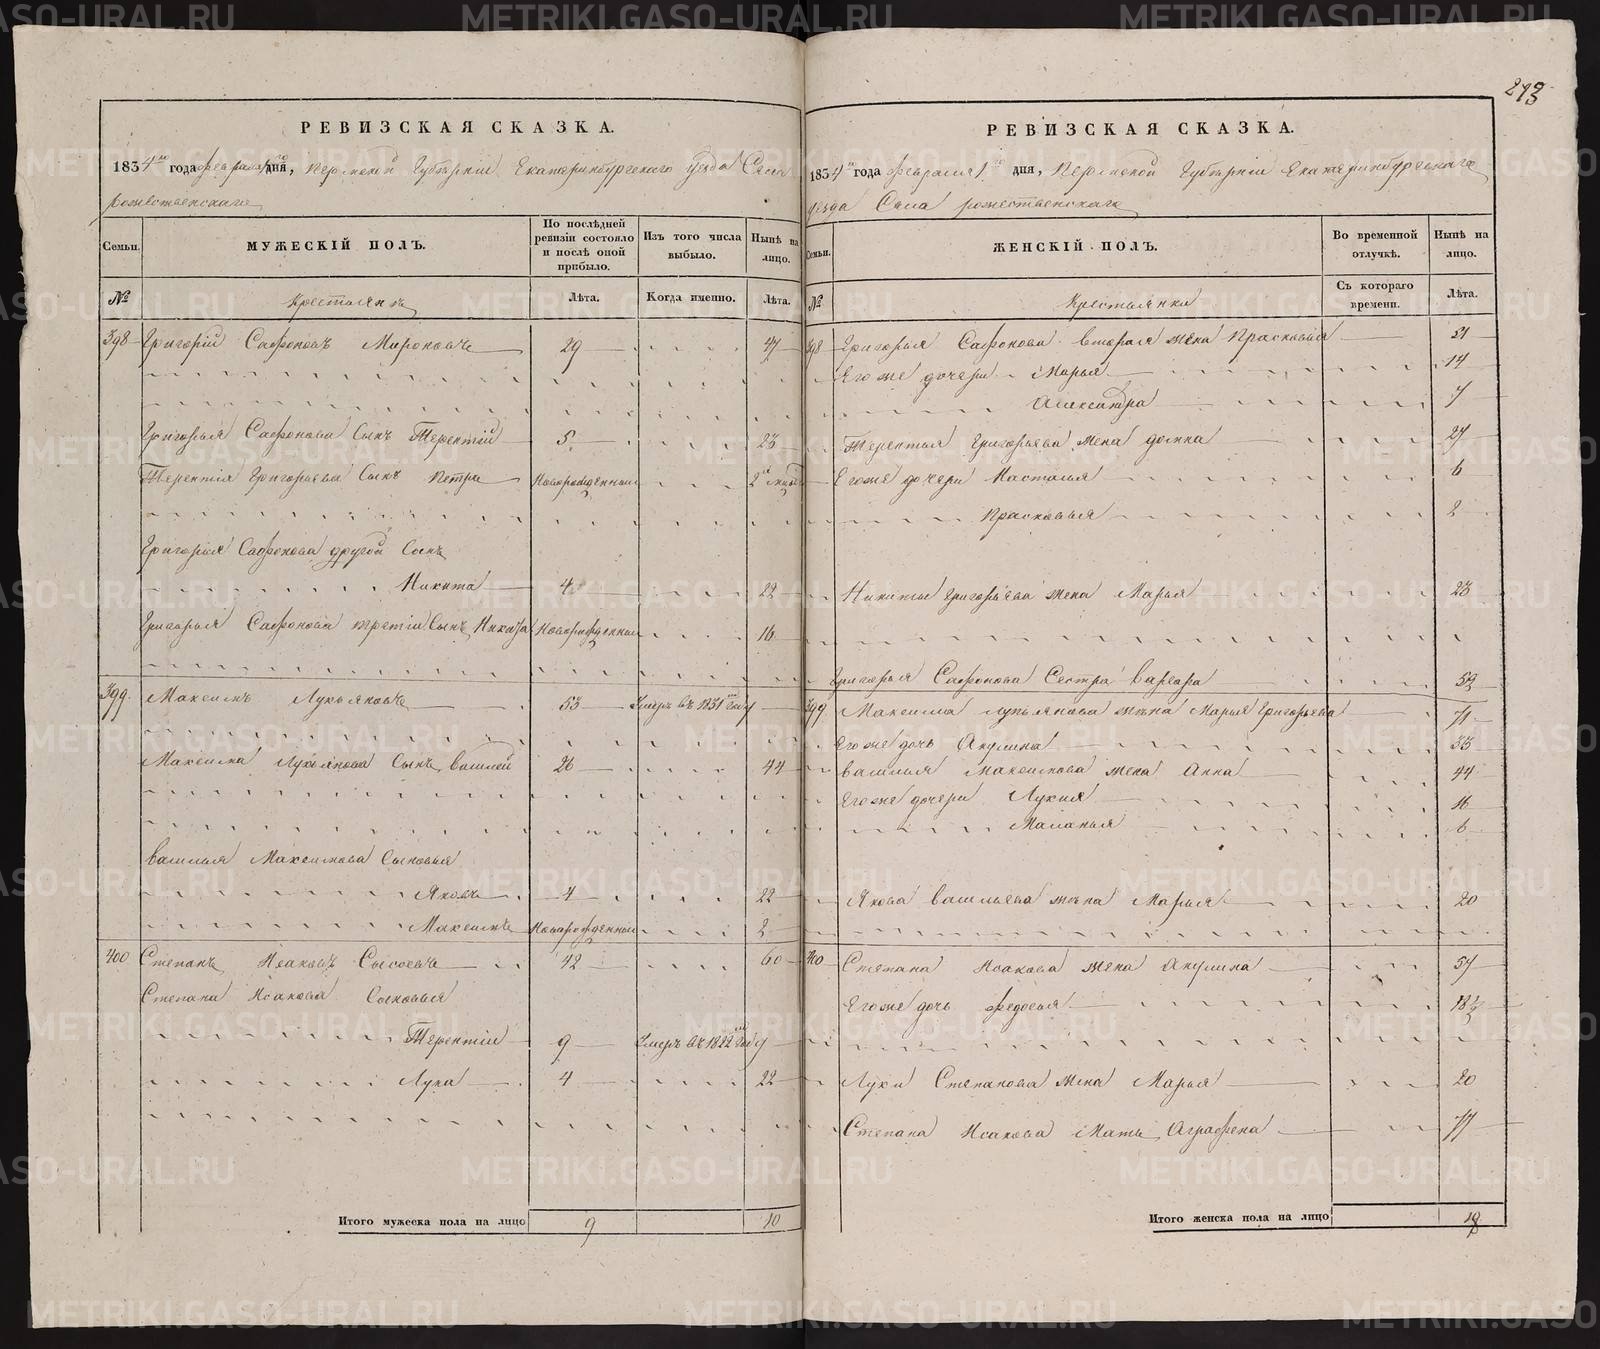 273
РЕВИЗСКАЯ СКАЗКА.
1834го года февраля 1го дня, Пермской Губернии Екатеринбургского уезда Села
рожественскаго
Семьи.
МУЖЕСКІЙ ПОЛЪ.
По послѣдней ревизіи состояло и послѣ оной прибыло.
Изъ того числа выбыло.
Нынѣ на лицо.
№
Крестьянъ
Лѣта.
Когда именно.
Лѣта.
398 Григорій Сафоновъ Мироновъ 29 47
Григорья Сафонова Сынъ Терентій 5 23
Терентія Григорьева Сынъ Петръ Новорожденный 2
Григорья Сафонова другой Сынъ
Никита 4 22
Григорья Сафонова третій Сынъ Новорожденный 16
399 Максимъ Лукьяновъ 53 Умеръ въ 1831 году
Максима Лукьянова Сынъ Василей 26 44
Василья Максимова Сыновья
Яковъ 4 22
Максимъ Новорожденный 2
400 Степанъ Исаковъ Сысоевъ 42 60
Степана Исакова Сыновья
Терентій 9 Умеръ въ 1822 году
Лука 4 22
Итого мужеска пола на лицо 9 10
РЕВИЗСКАЯ СКАЗКА.
1834го года февраля 1го дня, Пермской Губерніи Екатеринбургскаго
уезда Села рожественскаго
Семьи.
ЖЕНСКІЙ ПОЛЪ.
Во временной отлучкѣ.
Нынѣ на лицо.
№
Крестьянки
Съ котораго времени.
Лѣта.
398 Григорья Сафонова вторая жена Прасковья 21
Его же дочери Марья 14
Александра 7
Терентья Григорьева жена домна 27
Его же дочери Настасья 6
Прасковья 2
Никиты Григорьева жена Марья 23
Григорья Сафонова Сестра Варвара 59
399 Максима Лукьянова жена Марья Григорьева 71
Его же дочь Акулина 33
Василья Максимова жена Анна 44
Его же дочери Лукия 16
Маланья 6
Якова Васильева жена Марья 20
400 Степана Исакова жена Акулина 57
Его же дочь Федосья 18½
Луки Степанова жена Марья 20
Степана Исакова Мать Аграфена 77
Итого женска пола на лицо 18
METRIKI.GASO-URAL.RU